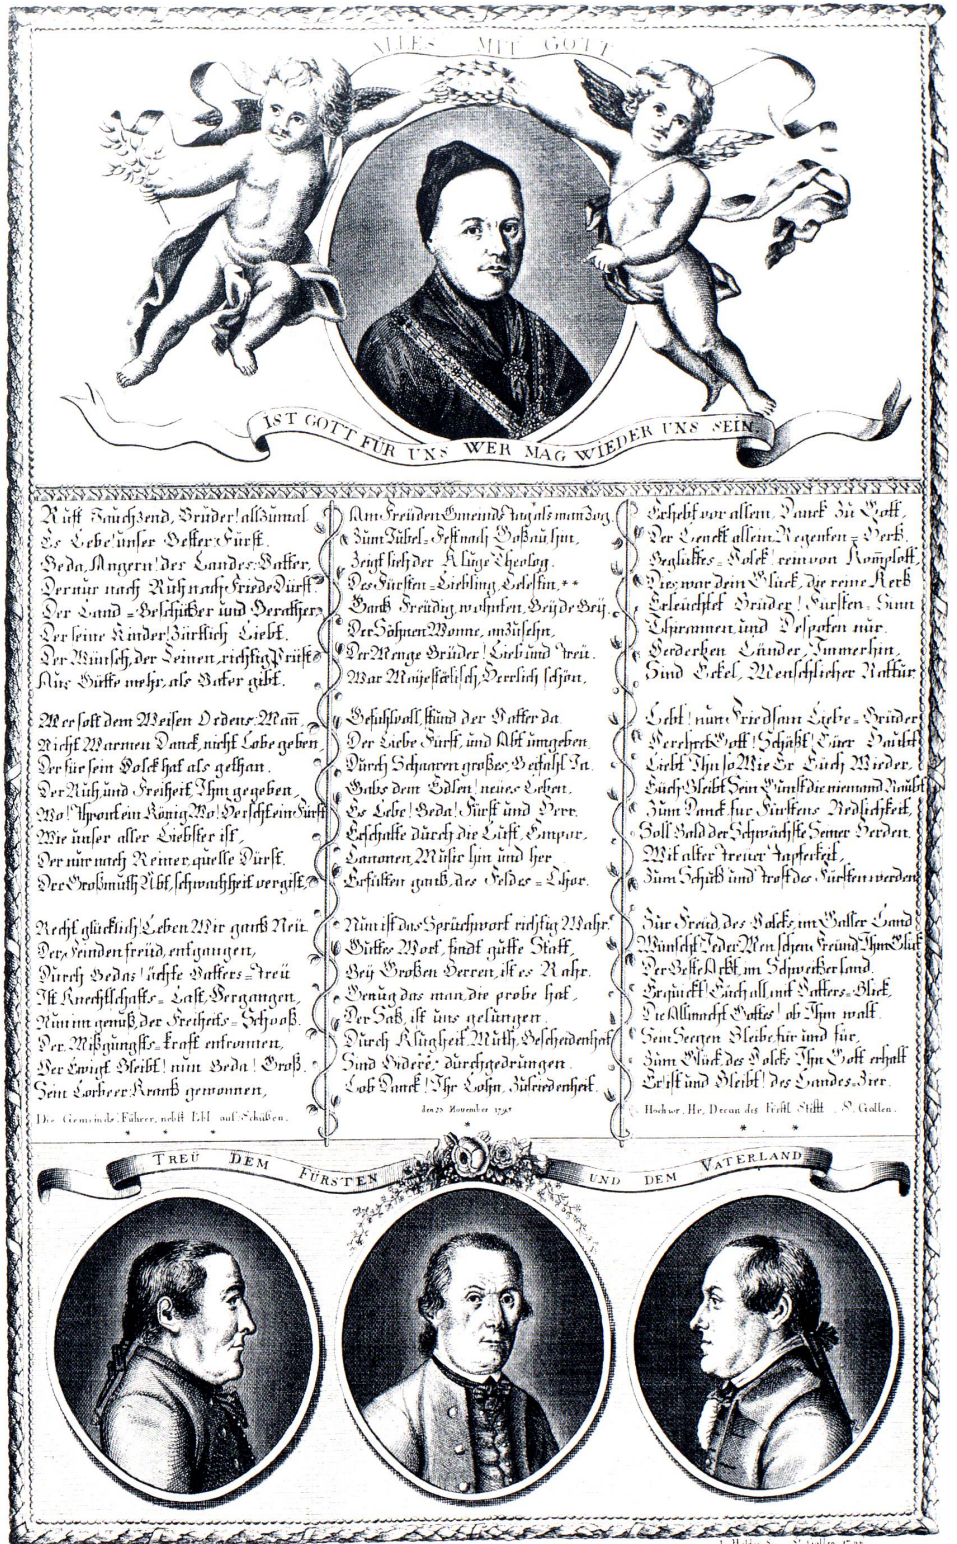 ALLES MIT GOTT
IST GOTT FÜR UNS WER MAG WIEDER UNS SEIN.
Rufft Jauchzend, Brüder! allzumal
Es Lebe! unser Bester Fürst.
Beda, Angern! des Landes Vatter,
Der nur nach Ruh nach Friede Dürst.
Der Land = Beschützer und Berather,
Der seine Kinder! Zärtlich Liebt.
Der Wünsch, der Seinen, richtig Prüft
Aus Gütte mehr, als Vater gibt.
Wer solt dem Weisen Ordens Mañ,
Nicht Warmen Danck, nicht Lobe geben,
Der für sein Volck hat als gethan.
Der Ruh, und Freiheit, Ihm gegeben,
Wo! Thront ein König, Wo! Herscht ein Fürst
Wie unser aller Liebster ist,
Der nur nach Reiner, quelle Dürst.
Der Großmuth Übt, schwachheit vergist,
Recht glücklich! Leben Wir gantz Neü
Der Feinden freüd, entgangen,
Durch Bedas! ächte Vatters = treü
Ist Knechtschafts = Last, Vergangen,
Nun im genuß, der Freiheits = Schooß.
Der Mißgungsts = kraft entronnen,
Der Ewigt Bleibt! nun Beda! Groß.
Sein Lorbeer Krantz gewonnen,
Die Gemeinds Führer, nebst Lobl. aus Schüßen.
Am Freüden Gmeinds tag als man Zog
Zum Jubel = Fest nach Goßau hin,
Zeigt sich der Kluge Theolog.
Des Fürsten = Liebling, Celestin, **
Gantz Freüdig, wohnten, Beÿde Beÿ.
Der Söhnen Wonne, anzusehn,
Der Menge Brüder! Lieb und Treü.
War Majestätisch, Herrlich schön,
Gefühlvoll, stund der Vatter da.
Der Liebe Fürst, und Abt umgeben,
Durch Schaaren großes Beifahl Ja.
Gabs dem Edlen! neues Leben.
Es Lebe! Beda! Fürst und Herr.
Erschallte durch die Luft, Empor,
Canonen, Music hin und her
Erfülten gantz, des Feldes = Chor.
Nun ist das Sprüchwort richtig Wahr.
Guttes Wort, findt gutte Statt,
Beÿ Großen Herren, ist es Rahr.
Genug das man, die probe hat,
Der Satz, ist uns gelungen.
Durch Klugheit, Muth, Bescheidenheit
Sind Biderë, durchgedrungen.
Lob Danck! Ihr Lohn, Zufriedenheit.
den 23 November 1795
Erhebt vor allem, Danck zu Gott,
Der Lenckt allein, Regenten = Hertz.
Beglücktes = Volck! rein von Kom̃plott
Dies war dein Glück, die reine Kertz
Erleüchtet Brüder! Fürsten = Sinn
Thirannen, und Despoten nur.
Verderben Länder, Immerhin,
Sind Eckel, Menschlicher Nattur,
Lebt! nun Friedsam Liebe = Brüder
Verehret Gott! Schätzt! Eüer Haubt
Liebt Ihn so Wie Er Eüch Wieder,
Eüch Bleibt Sein Gunst die niemand Raubt
Zum Danck für Fürstens Redlichkeit,
Soll Bald der Schwächste Seiner Herden.
Mit alter treuer tapferkeit,
Zum Schutz und trost des Fürsten werden
Zur Freüd, des Volcks, im Galler Land
Wünscht Jeder Menschen Freünd Ihm Glück
Der Beste Arbt, im Schweitzerland.
Erquickt! Eüch all, mit Vatters = Blick,
Die Allmacht Gottes! ob Ihm walt.
Sein Seegen Bleibe, für und für,
Zum Glück des Volcks Ihn Gott erhalt
Er ist und Bleibt! des Landes = Zier.
Hochwr. Hr. Decan des Fürstl Stifft St. Gallen.
TREÜ DEM FÜRSTEN UND DEM VATERLAND